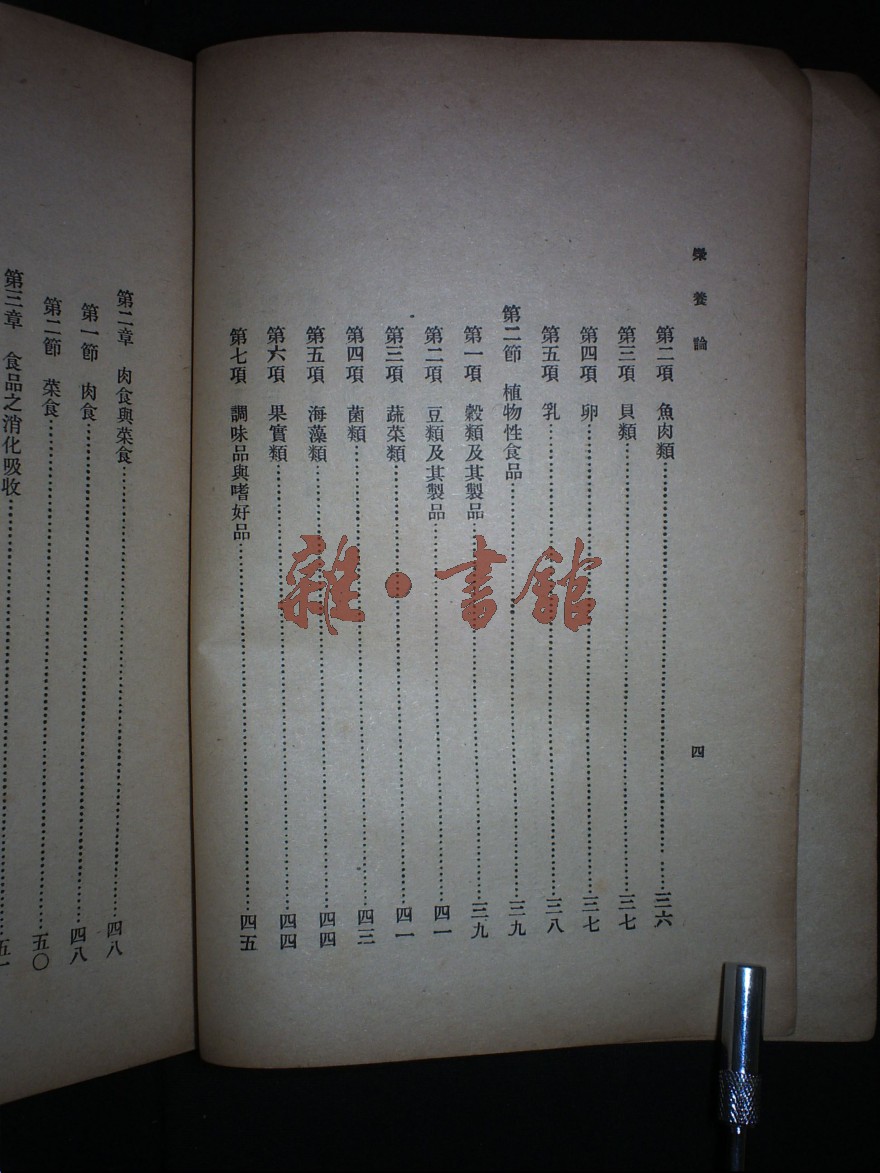 榮養論
四
第二項 魚肉類……三六
第三項 貝類……三七
第四項 卵……三七
第五項 乳……三八
第二節 植物性食品……三九
第一項 穀類及其製品……三九
第二項 豆類及其製品……四一
第三項 蔬菜類……四一
第四項 菌類……四三
第五項 海藻類……四四
第六項 果實類……四四
第七項 調味品與嗜好品……四五
第二章 肉食與菜食……四八
第一節 肉食……四八
第二節 菜食……五〇
第三章 食品之消化吸收……五一
雜·書館